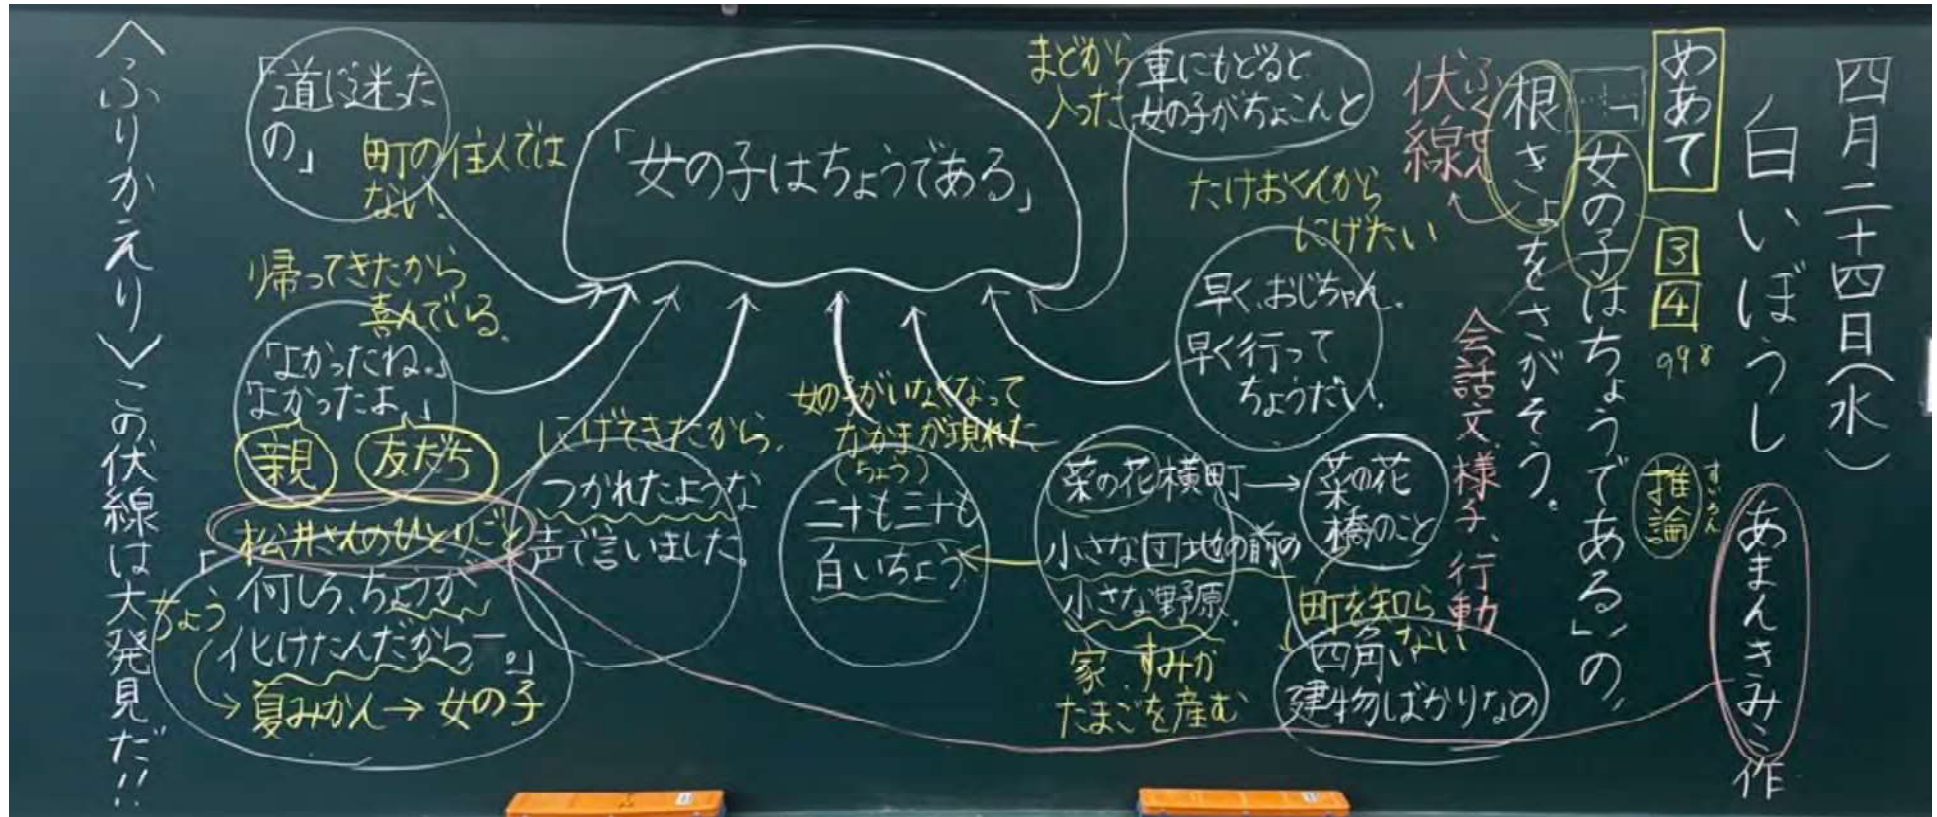 四月二十四日(水)
白いぼうし
あまんきみこ作
めあて
3
4
推論
すいろん
「女の子はちょうである」の、
根きょをさがそう。
ふくせん
伏線
会話文、様子、行動
まどから
入った
車にもどると
女の子がちょこんと
たけおくんから
にげたい
早く、おじちゃん。
早く行って
ちょうだい。
菜の花横町→菜の花
橋のこと
小さな団地の前の
小さな野原
町を知ら
ない
四角い
建物ばかりなの
家、すみか
たまごを産む
「女の子はちょうである」
女の子がいなくなって
なかまが現れた
(ちょう)
二十も三十も
白いちょう
にげてきたから、
つかれたような
声で言いました。
「道に迷った
の」
町の住人では
ない、
帰ってきたから
喜んでいる。
「よかったね。」
「よかったよ。」
親
友だち
松井さんのひとりごと
「何しろ、ちょうが
化けたんだから―。」
ちょう
→夏みかん→女の子
〈ふりかえり〉この伏線は大発見だ!!